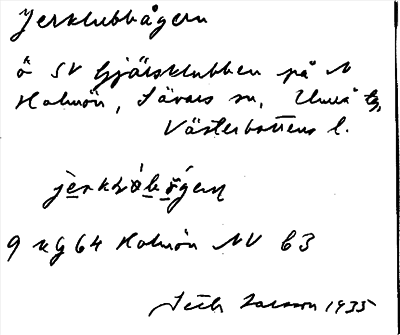 Jerklubbågern
ö SV Gjälsklubben på N
Holmön, Sävars sn, Umeå tg,
Västerbottens l.
9 Kg 64 Holmön NV 63
Seth Larsson 1935